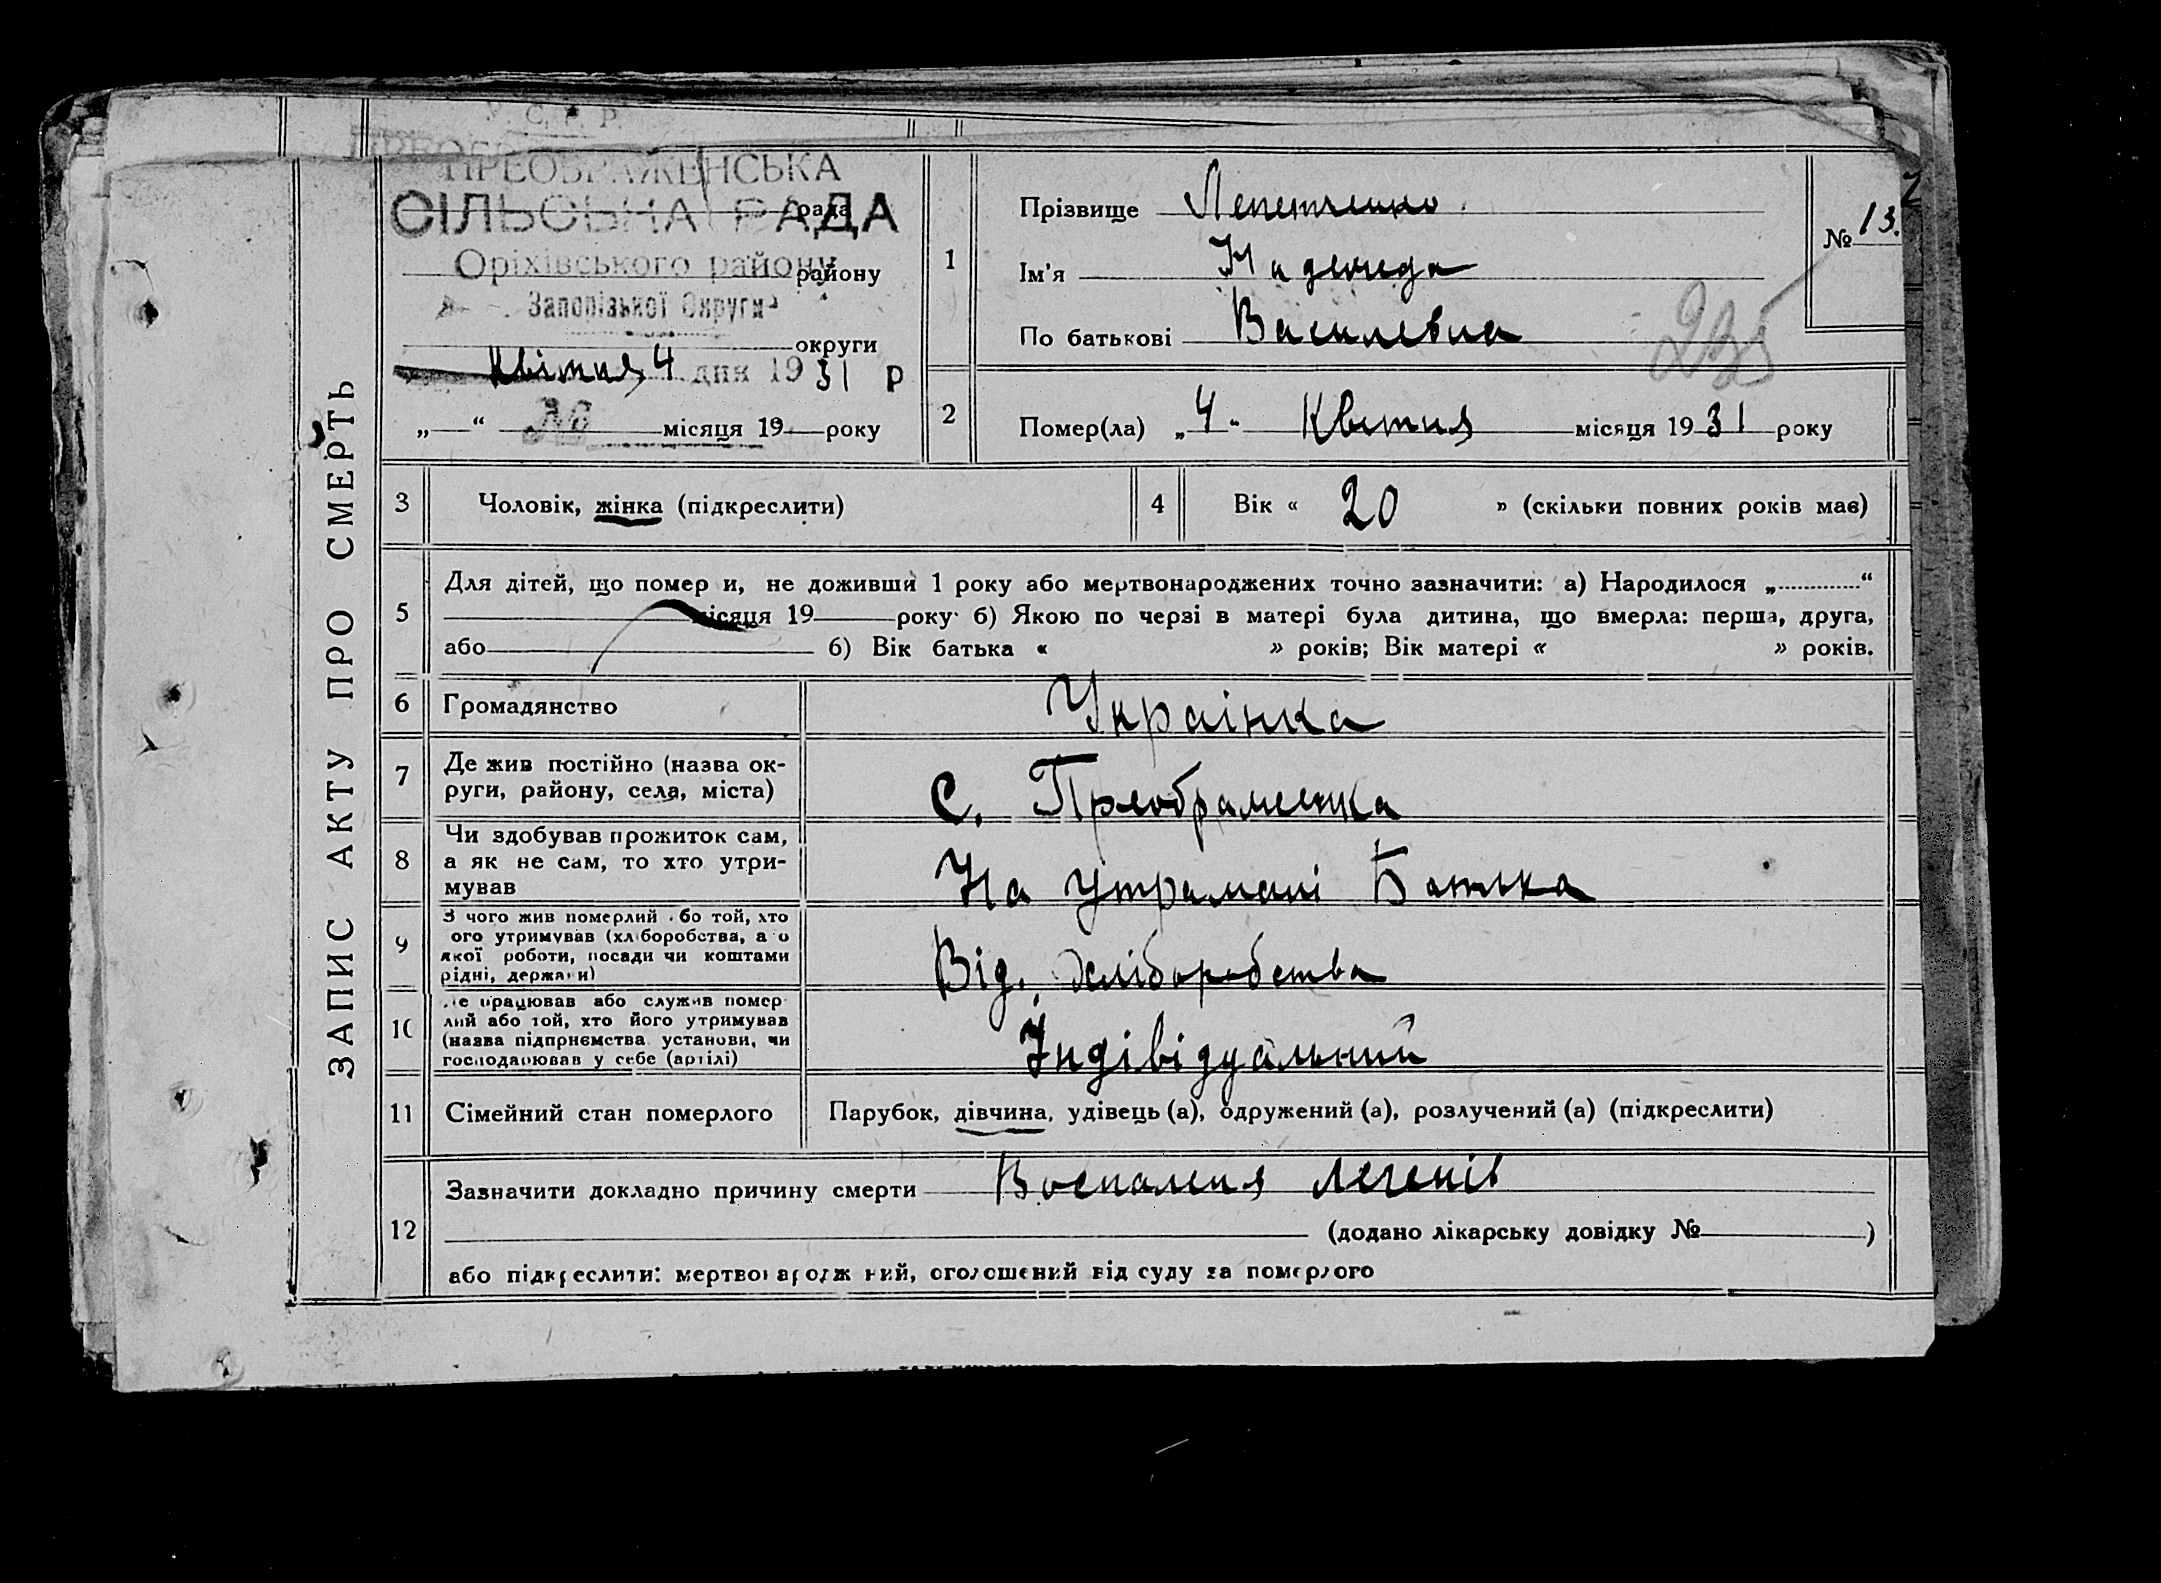 У. С. Р. Р.
ПРЕОБРАЖЕНСЬКА
СІЛЬСЬКА РАДА
рада
Оріхівського району
району
Запорізької Округи
округи
Квітня 4 дня 1931 р
„ “ № місяця 19 року
ЗАПИС АКТУ ПРО СМЕРТЬ
1
Прізвище Лепетченко
Ім'я Надежда
По батькові Василевна
№ 13.
235
2
Помер(ла) „4“ Квітня місяця 1931 року
3 Чоловік, жінка (підкреслити)
4 Вік « 20 » (скільки повних років має)
5
Для дітей, що помер и, не доживши 1 року або мертвонароджених точно зазначити: а) Народилося „ “
місяця 19 року б) Якою по черзі в матері була дитина, що вмерла: перша, друга,
або б) Вік батька « » років; Вік матері « » років.
6 Громадянство Украінка
7 Де жив постійно (назва ок-
руги, району, села, міста)
С. Преображенка
8 Чи здобував прожиток сам,
а як не сам, то хто утри-
мував
На утрамані Батька
9 З чого жив померлий або той, хто
ого утримував (хліборобства, а о
якої роботи, посади чи коштами
рідні, держави)
Від. хліборобства
10 Де працював або служив помер-
лий або той, хто його утримував
(назва підприємства установи, чи
господарював у себе (артілі)
Індівідуальний
11 Сімейний стан померлого Парубок, дівчина, удівець (а), одружений (а), розлучений (а) (підкреслити)
12
Зазначити докладно причину смерти Воспаленя легенів
(додано лікарську довідку № )
або підкреслити: мертвонароджений, оголошений від суду за померлого